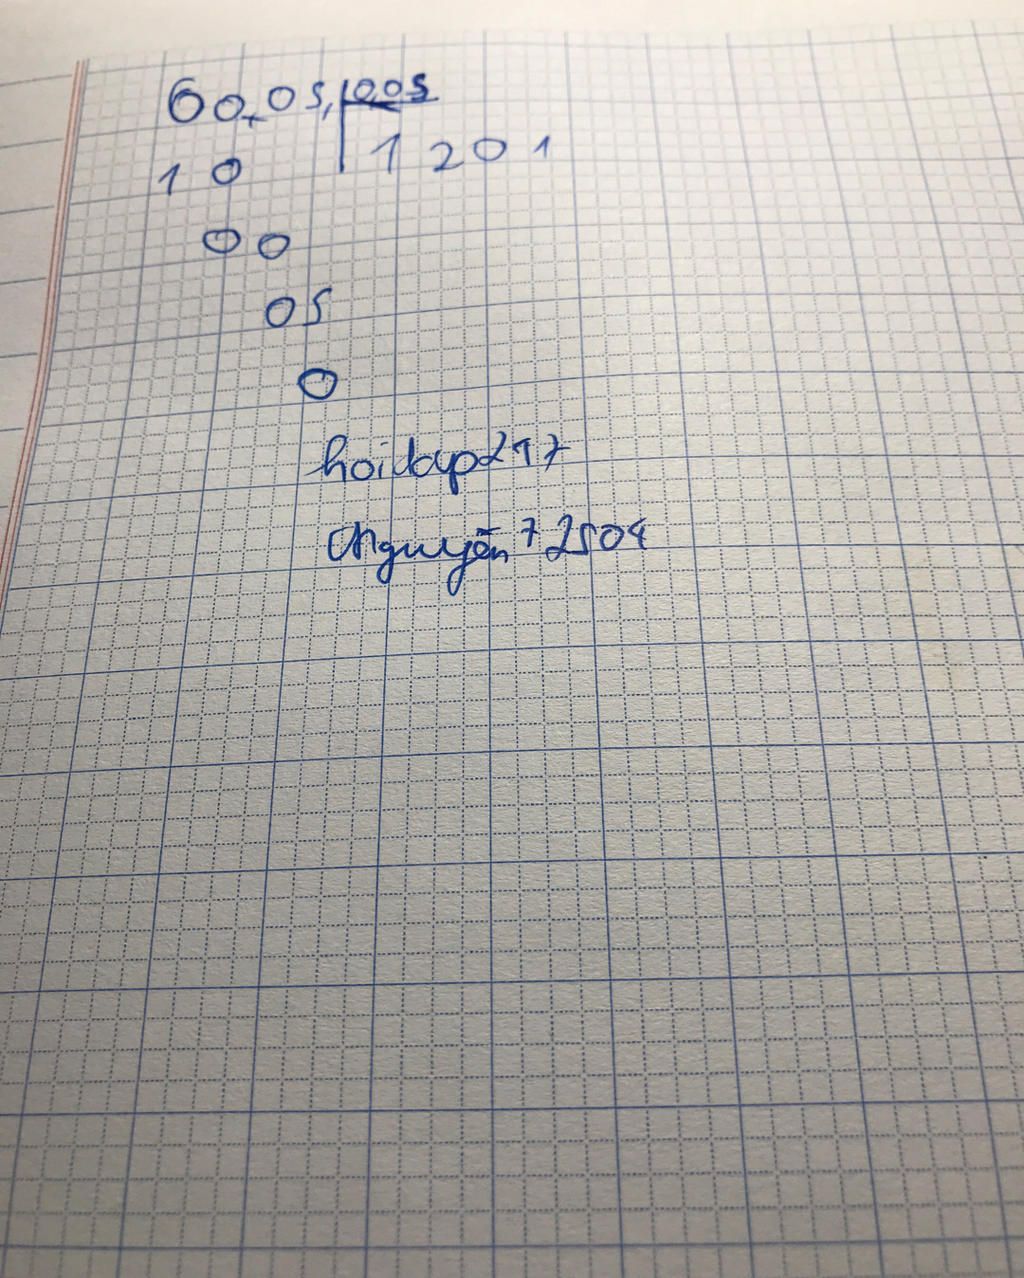 60,05 0,05
1 0 1 2 0 1
0 0
0 5
0
hoidap247
Nguyễn72504